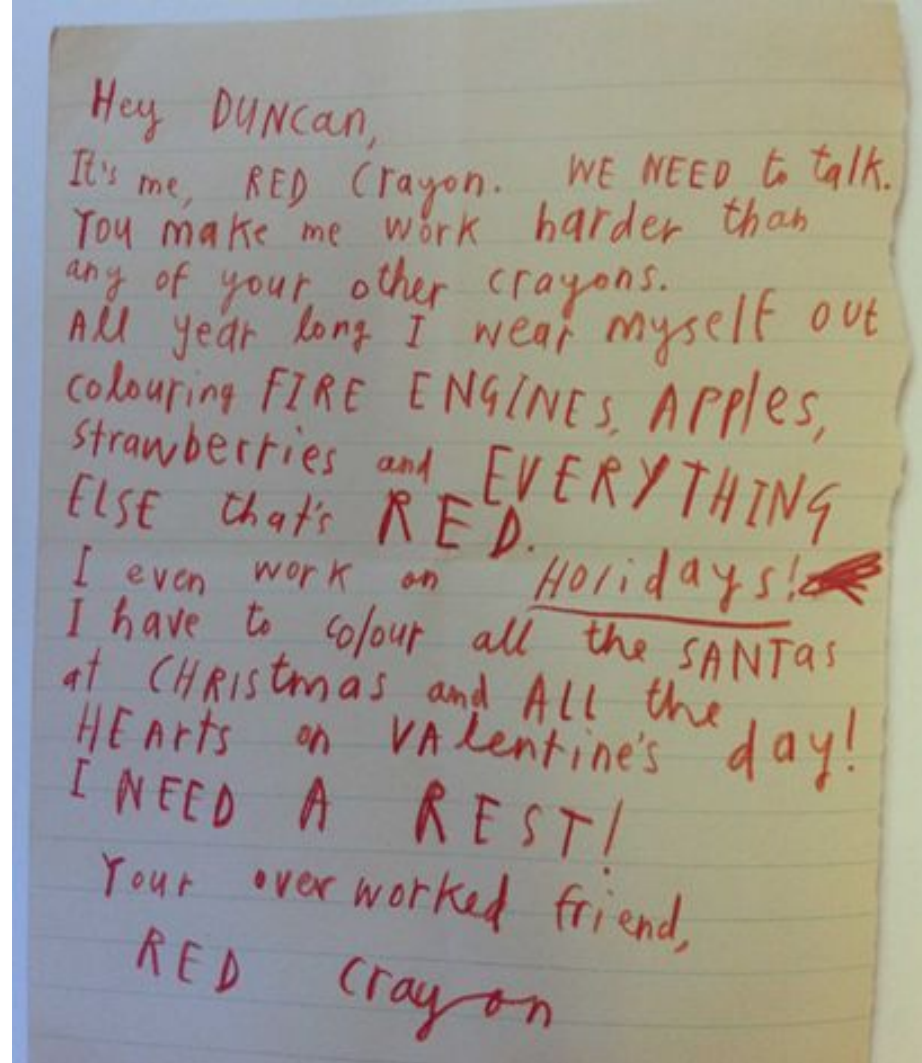 Hey DUNCan,
It's me, RED Crayon. WE NEED to talk.
You make me work harder than
any of your other crayons.
All year long I wear myself out
colouring FIRE ENGINEs, Apples,
strawberries and EVERYTHING
ELSE that's RED.
I even work on Holidays!
I have to colour all the SANTas
at CHRIStmas and ALL the
HEArts on VAlentine's day!
I NEED A REST!
Your overworked friend,
RED Crayon